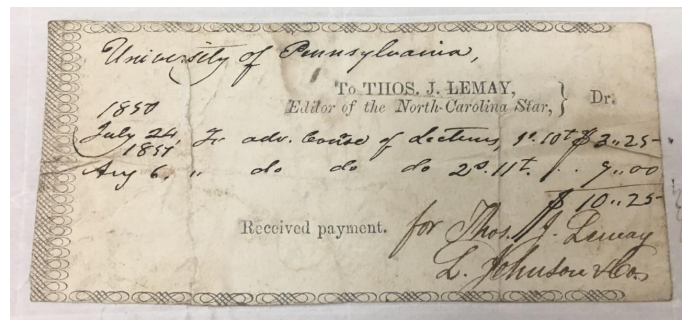 University of Pennsylvania,
To THOS. J. LEMAY,
Editor of the North-Carolina Star, } Dr.
1850
July 24, Fr adv. Course of Lectures, 1s. 10t $ 3..25
1851
Aug 6, " do do do 2s. 11t. . . 7..00
$ 10..25
Received payment. for Thos. J. Lemay
L. Johnson & Co